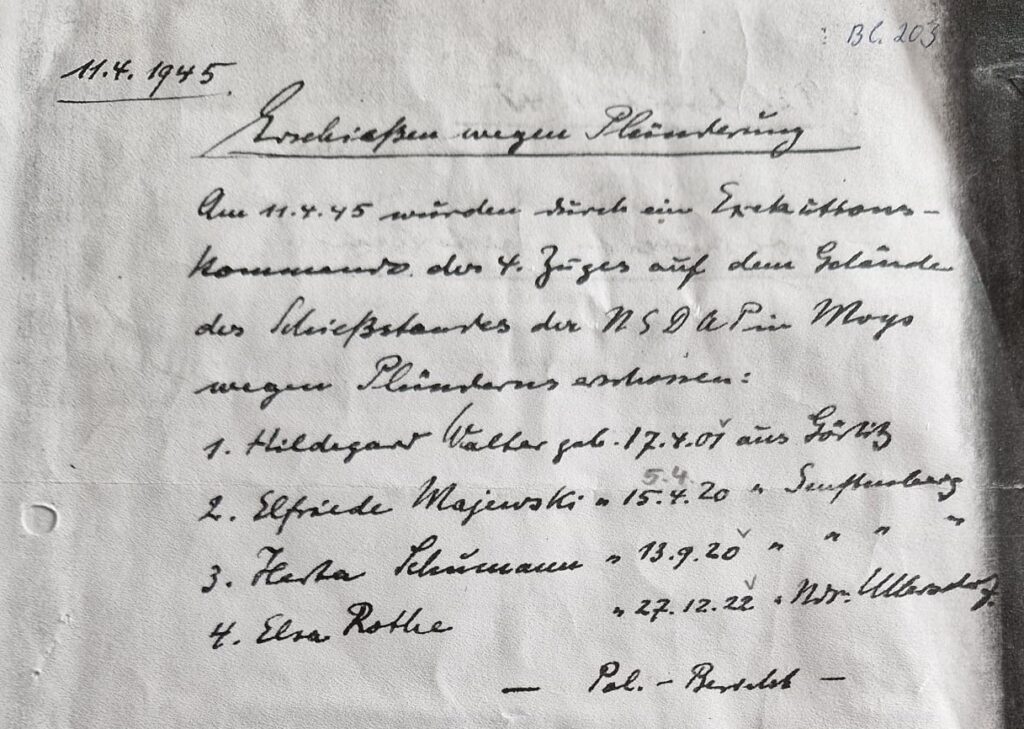 Bl. 203
11.4. 1945
Erschießen wegen Plünderung
Am 11.4.45 wurden durch ein Exekutions-
kommando des 4. Zuges auf dem Gelände
des Schießstandes der NSDAP in Moys
wegen Plünderns erschossen:
1. Hildegard Walter geb. 17.4.01 aus Görlitz
5.4.
2. Elfriede Majewski " 15.4.20 " Senftenberg
3. Herta Schumann " 13.9.20 " " " "
4. Elsa Rothe " 27.12.22 " Ndr. Ullersdorf.
— Pol. - Bericht —